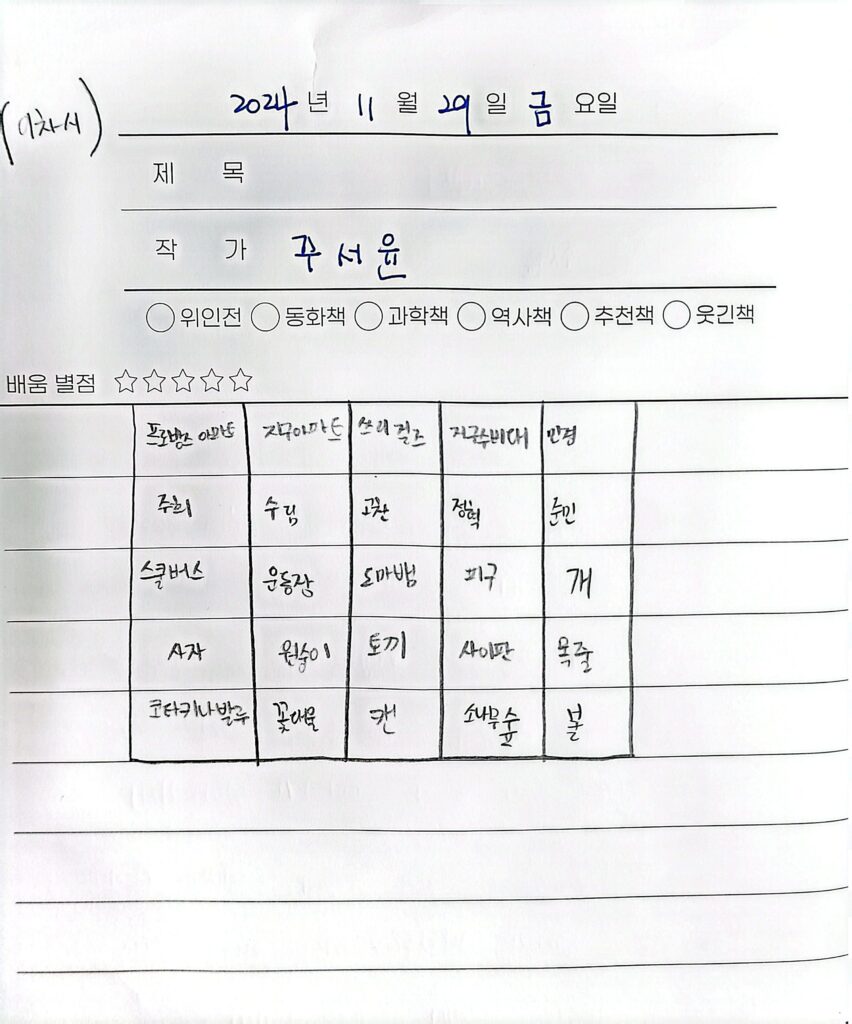 (이차시)
2024년 11월 29일 금요일
제 목
작 가 주서윤
위인전 동화책 과학책 역사책 추천책 웃긴책
배움 별점 ☆☆☆☆☆
프로방스 아파트 지구아파트 쓰리걸즈 지구수비대 안경
주희 수림 고찬 정혁 준민
스쿨버스 운동장 도마뱀 피구 개
사자 원숭이 토끼 사이판 목줄
코타키나발루 꽃다발 캔 소나무숲 불